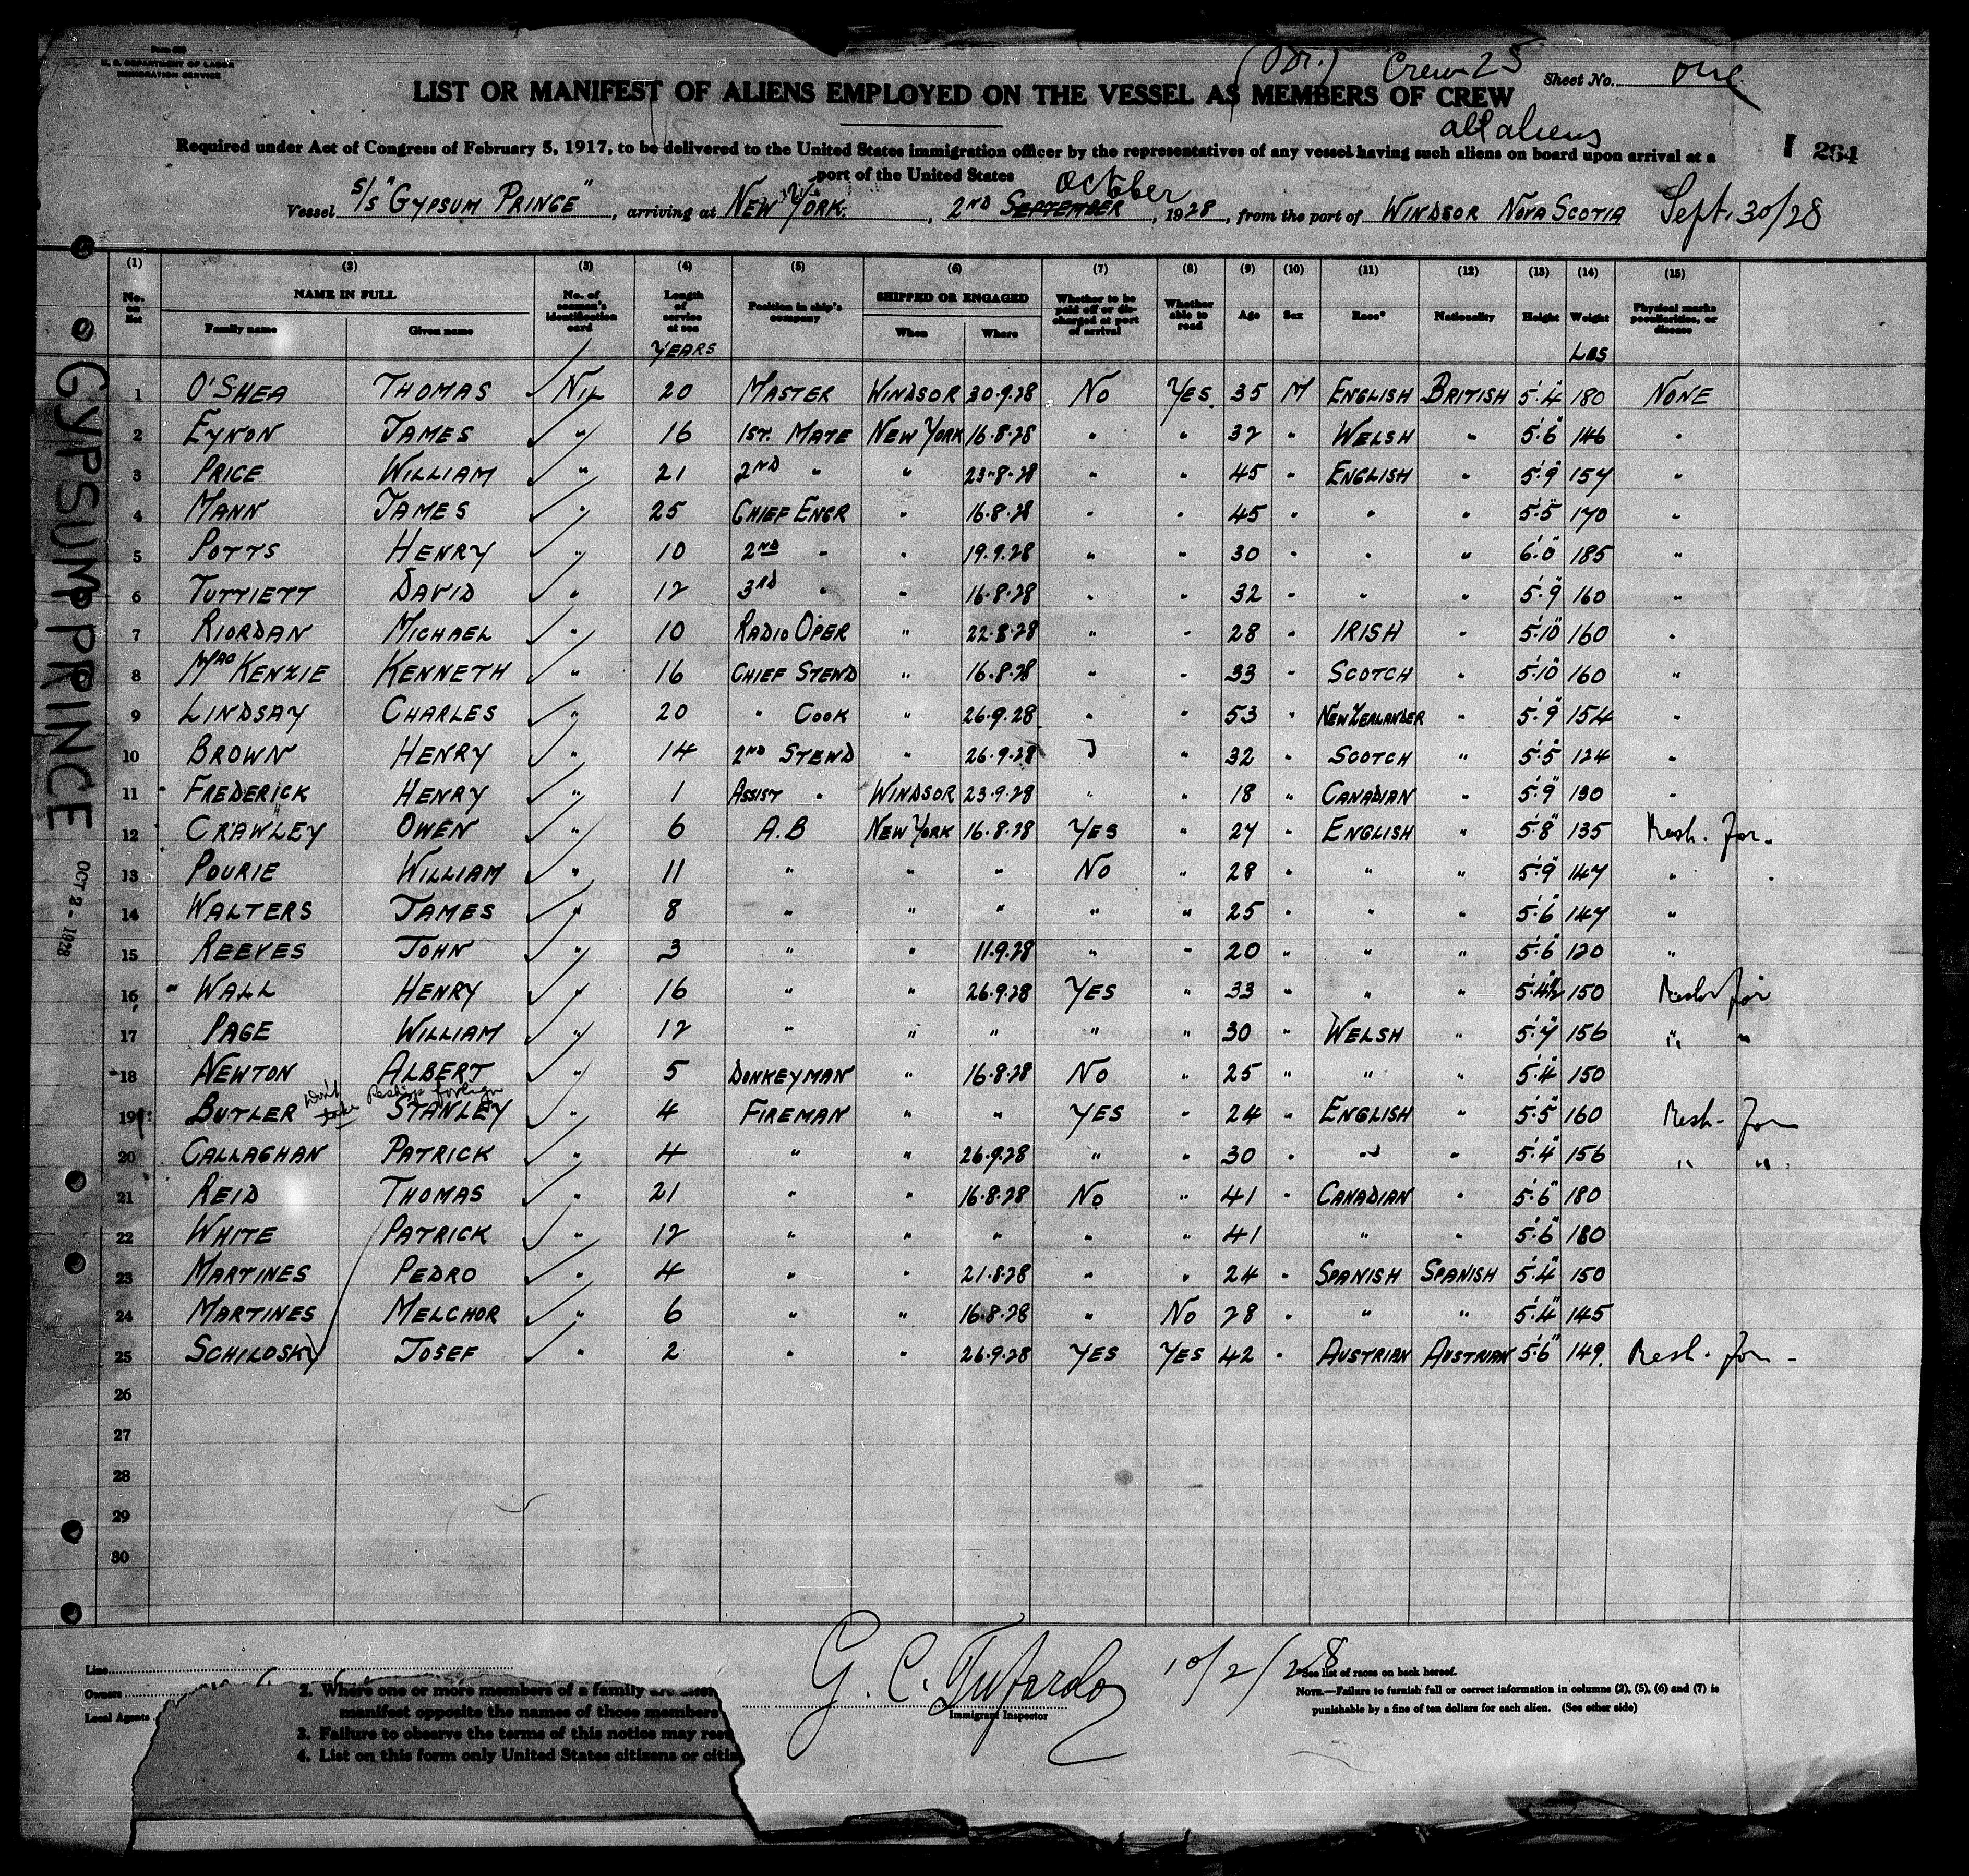 U. S. DEPARTMENT OF LABOR
IMMIGRATION SERVICE
(Dr.) Crew 25 Sheet No. one
LIST OR MANIFEST OF ALIENS EMPLOYED ON THE VESSEL AS MEMBERS OF CREW
all aliens
Required under Act of Congress of February 5, 1917, to be delivered to the United States immigration officer by the representatives of any vessel having such aliens on board upon arrival at a
port of the United States
264
October
Vessel S/S "GYPSUM PRINCE", arriving at NEW YORK, 2ND SEPTEMBER, 1928, from the port of WINDSOR NOVA SCOTIA Sept. 30/28
(1) (2) (3) (4) (5) (6) (7) (8) (9) (10) (11) (12) (13) (14) (15)
No. on list NAME IN FULL Family name Given name No. of seamen's identification card Length of service at sea Position in ship's company SHIPPED OR ENGAGED When Where Whether to be paid off or discharged at port of arrival Whether able to read Age Sex Race* Nationality Height Weight Physical marks peculiarities, or disease
YEARS LBS
1 O'SHEA THOMAS NIL 20 MASTER WINDSOR 30.9.28 NO YES 35 M ENGLISH BRITISH 5'.4" 180 NONE
2 EYNON JAMES " 16 1ST. MATE NEW YORK 16.8.28 " " 32 " WELSH " 5'.6" 146 "
3 PRICE WILLIAM " 21 2ND " " 23.8.28 " " 45 " ENGLISH " 5'.9" 157 "
4 MANN JAMES " 25 CHIEF ENGR " 16.8.28 " " 45 " " " 5'.5" 170 "
5 POTTS HENRY " 10 2ND " " 19.9.28 " " 30 " " " 6'.0" 185 "
6 TUTTIETT DAVID " 12 3RD " " 16.8.28 " " 32 " " " 5'.9" 160 "
7 RIORDAN MICHAEL " 10 RADIO OPER " 22.8.28 " " 28 " IRISH " 5'.10" 160 "
8 MACKENZIE KENNETH " 16 CHIEF STEWD " 16.8.28 " " 33 " SCOTCH " 5'.10" 160 "
9 LINDSAY CHARLES " 20 " COOK " 26.9.28 " " 53 " NEW ZEALANDER " 5'.9" 154 "
10 BROWN HENRY " 14 2ND STEWD " 26.9.28 " " 32 " SCOTCH " 5'.5" 124 "
11 FREDERICK HENRY " 1 ASSIST " WINDSOR 23.9.28 " " 18 " CANADIAN " 5'.9" 130 "
12 CRAWLEY OWEN " 6 A.B NEW YORK 16.8.28 YES " 27 " ENGLISH " 5'.8" 135 Resh. for.
13 POURIE WILLIAM " 11 " " " NO " 28 " " " 5'.9" 147 "
14 WALTERS JAMES " 8 " " " " " 25 " " " 5'.6" 147 "
15 REEVES JOHN " 3 " " 11.9.28 " " 20 " " " 5'.6" 120 "
16 WALL HENRY " 16 " " 26.9.28 YES " 33 " " " 5'.4½" 150 Resh for
17 PAGE WILLIAM " 12 " " " " " 30 " WELSH " 5'.7" 156 " "
18 NEWTON ALBERT " 5 DONKEYMAN " 16.8.28 NO " 25 " " " 5'.4" 150
Don't take Reship foreign
19 BUTLER STANLEY " 4 FIREMAN " " YES " 24 " ENGLISH " 5'.5" 160 Resh. for
20 CALLAGHAN PATRICK " 4 " " 26.9.28 " " 30 " " " 5'.4" 156 " "
21 REID THOMAS " 21 " " 16.8.28 NO " 41 " CANADIAN " 5'.6" 180
22 WHITE PATRICK " 12 " " " " " 41 " " 5'.6" 180
23 MARTINES PEDRO " 4 " " 21.8.28 " " 24 " SPANISH SPANISH 5'.4" 150
24 MARTINES MELCHOR " 6 " " 16.8.28 " NO 28 " " " 5'.4" 145
25 SCHILOSKY JOSEF " 2 " " 26.9.28 YES YES 42 " AUSTRIAN AUSTRIAN 5'.6" 149. Resh. for
26
27
28
29
30
GYPSUM PRINCE
OCT 2 - 1928
Line
Owners
Local Agents
2. Where one or more members of a family are
manifest opposite the names of those members
3. Failure to observe the terms of this notice may
4. List on this form only United States citizens or
10/2/28
Immigrant Inspector
*See list of races on back hereof.
NOTE.—Failure to furnish full or correct information in columns (2), (5), (6) and (7) is
punishable by a fine of ten dollars for each alien. (See other side)